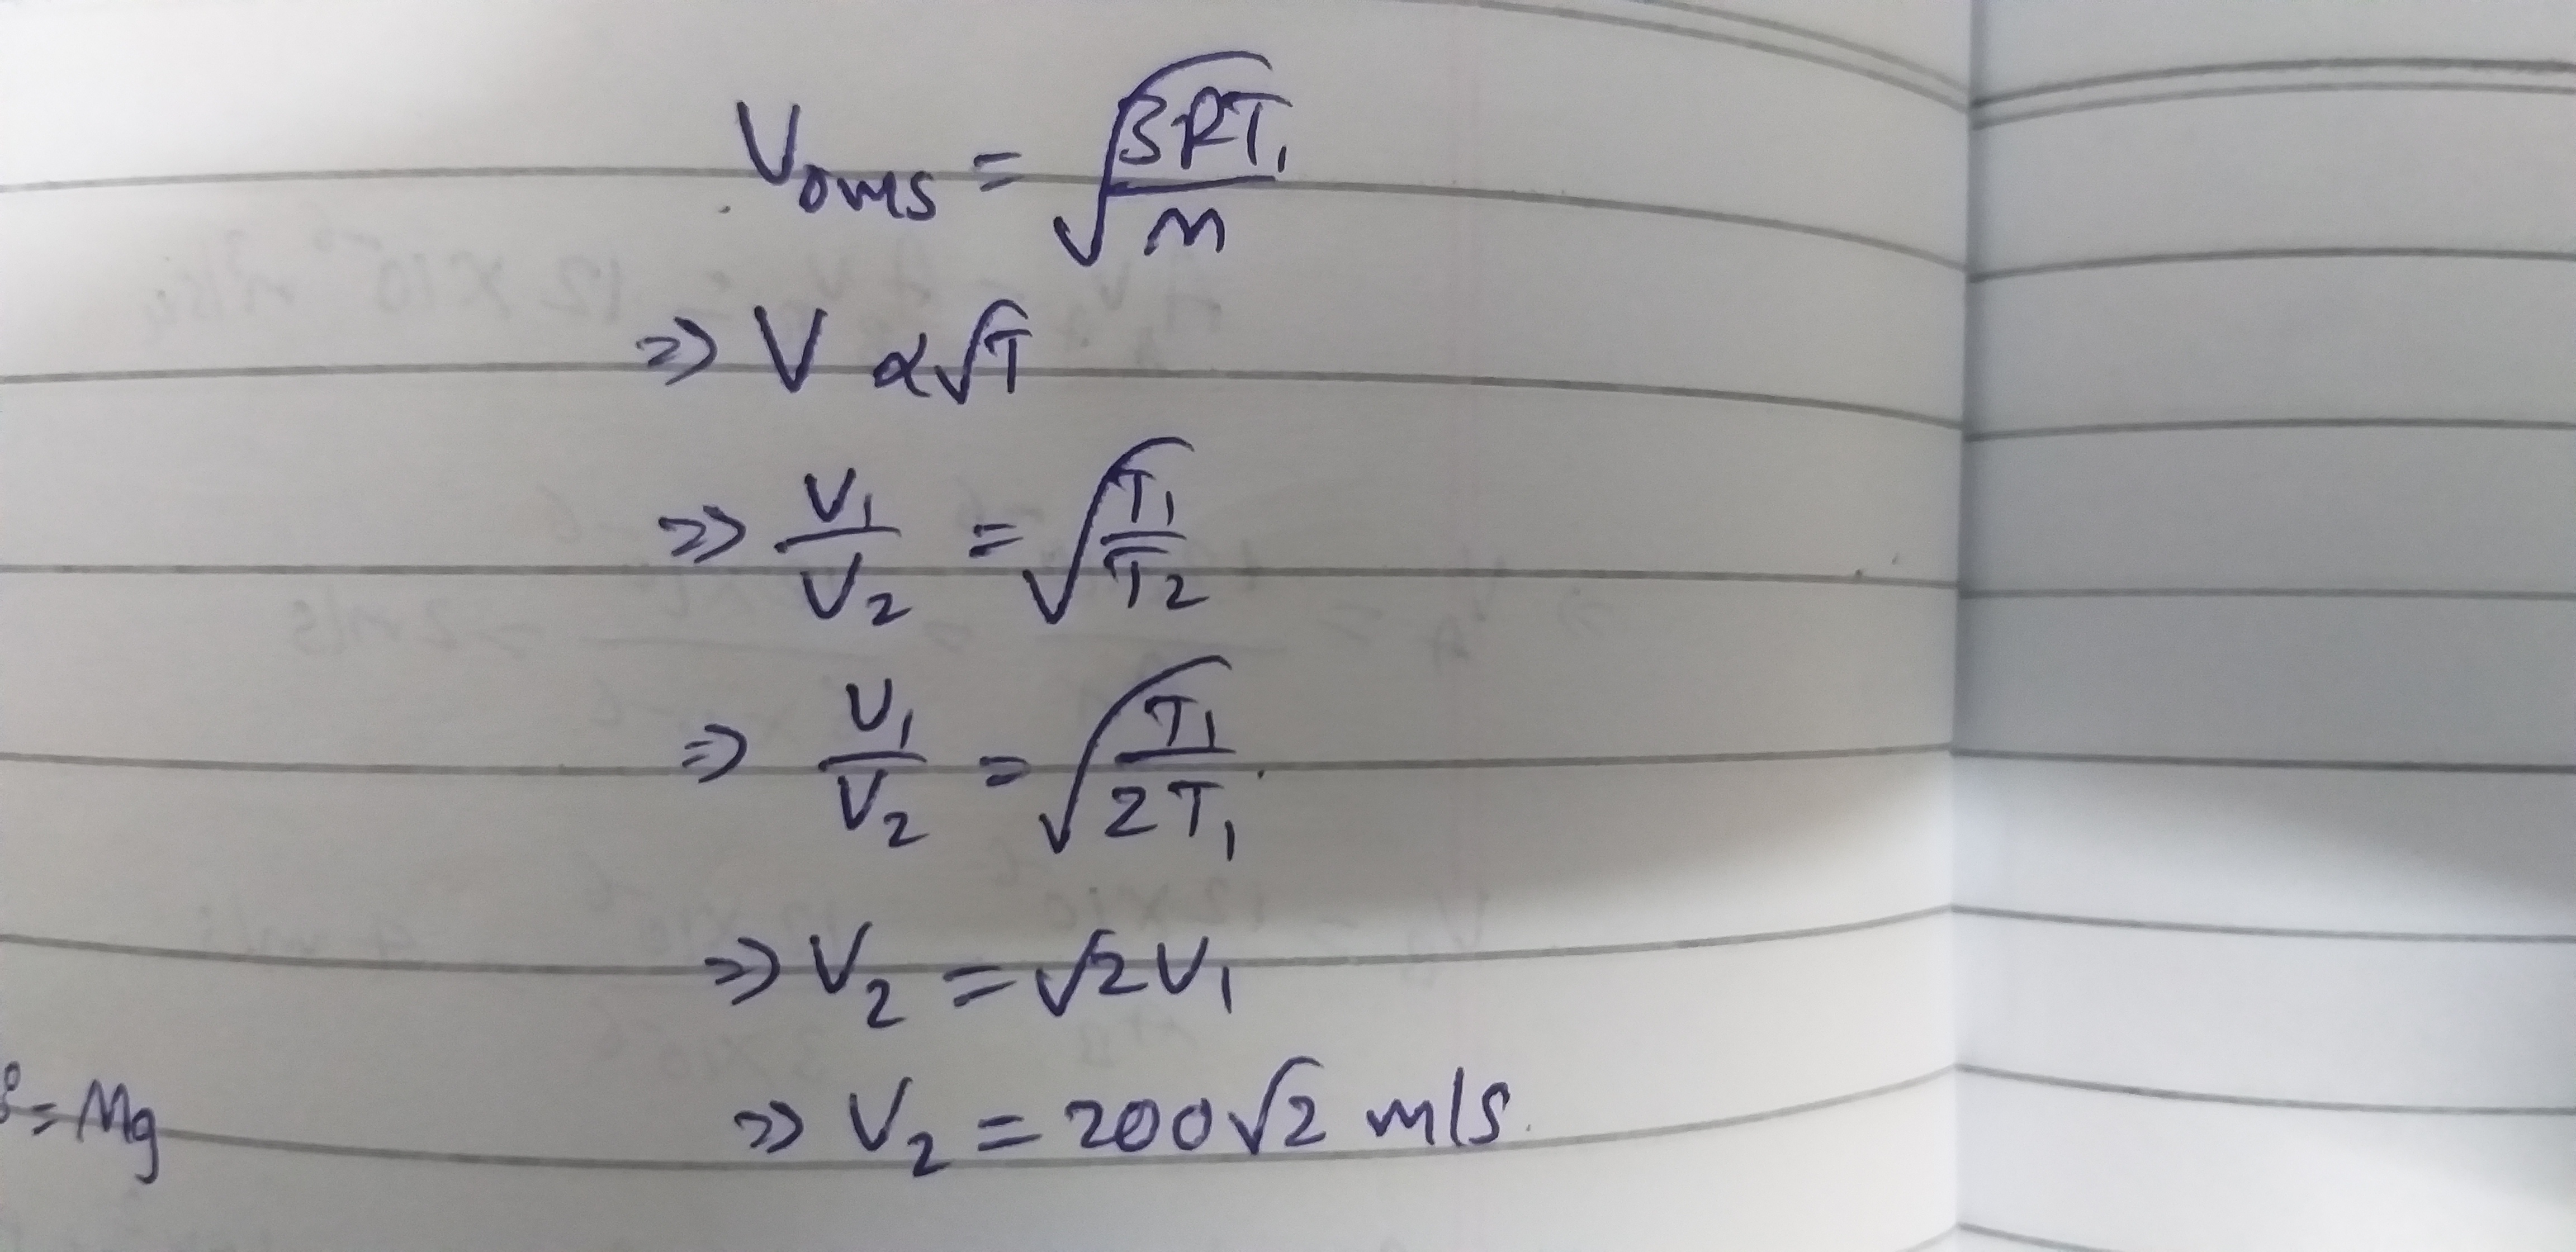 Vrms = √(3RT₁/M)
⇒ V ∝ √T
⇒ V₁/V₂ = √(T₁/T₂)
⇒ V₁/V₂ = √(T₁/2T₁)
⇒ V₂ = √2 V₁
= Mg
⇒ V₂ = 200√2 m/s.